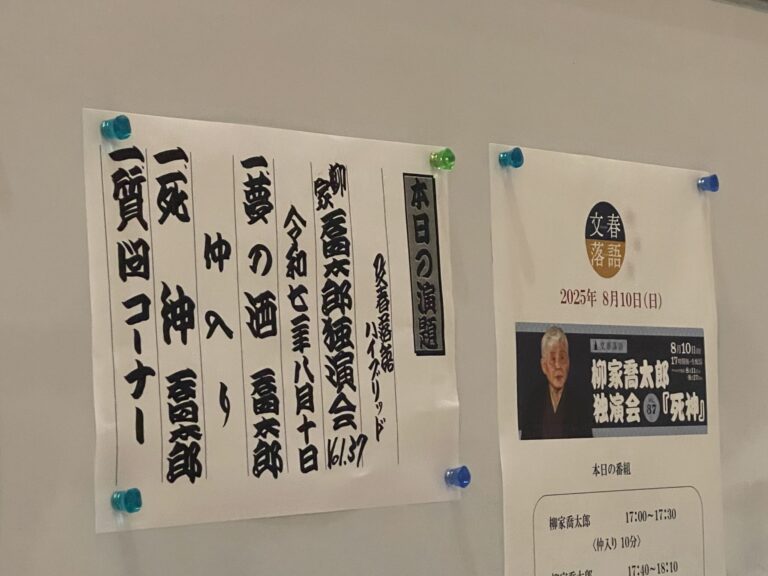 本日の演題
文春落語
ハイブリッド
柳家喬太郎独演会 Vol.37
令和七年八月十日
一、夢の酒 喬太郎
仲入り
一、死神 喬太郎
一、質問コーナー
文春落語
2025年 8月10日(日)
文春落語
8月10日
柳家喬太郎
独演会
37
『死神』
本日の番組
柳家喬太郎 17:00~17:30
〈仲入り 10分〉
柳家喬太郎 17:40~18:10